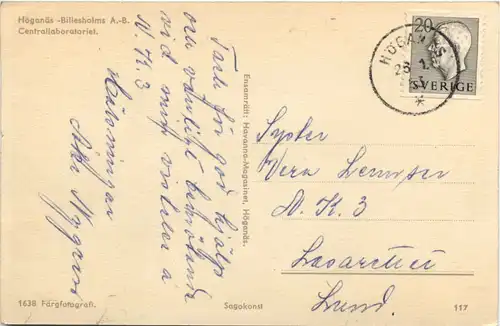 Höganäs -Billesholms A.-B.
Centrallaboratoriet.
Tack för god hjälp
och vänligt bemötande
vid mitt vistelse å
N. K 3
Hälsningar
Ensamrätt: Havanna-Magasinet, Höganäs.
20
SVERIGE
HÖGANÄS
Syster
Vera
A. K. 3
Lasarettet
Lund.
1638 Färgfotografi.
Sagokonst
117